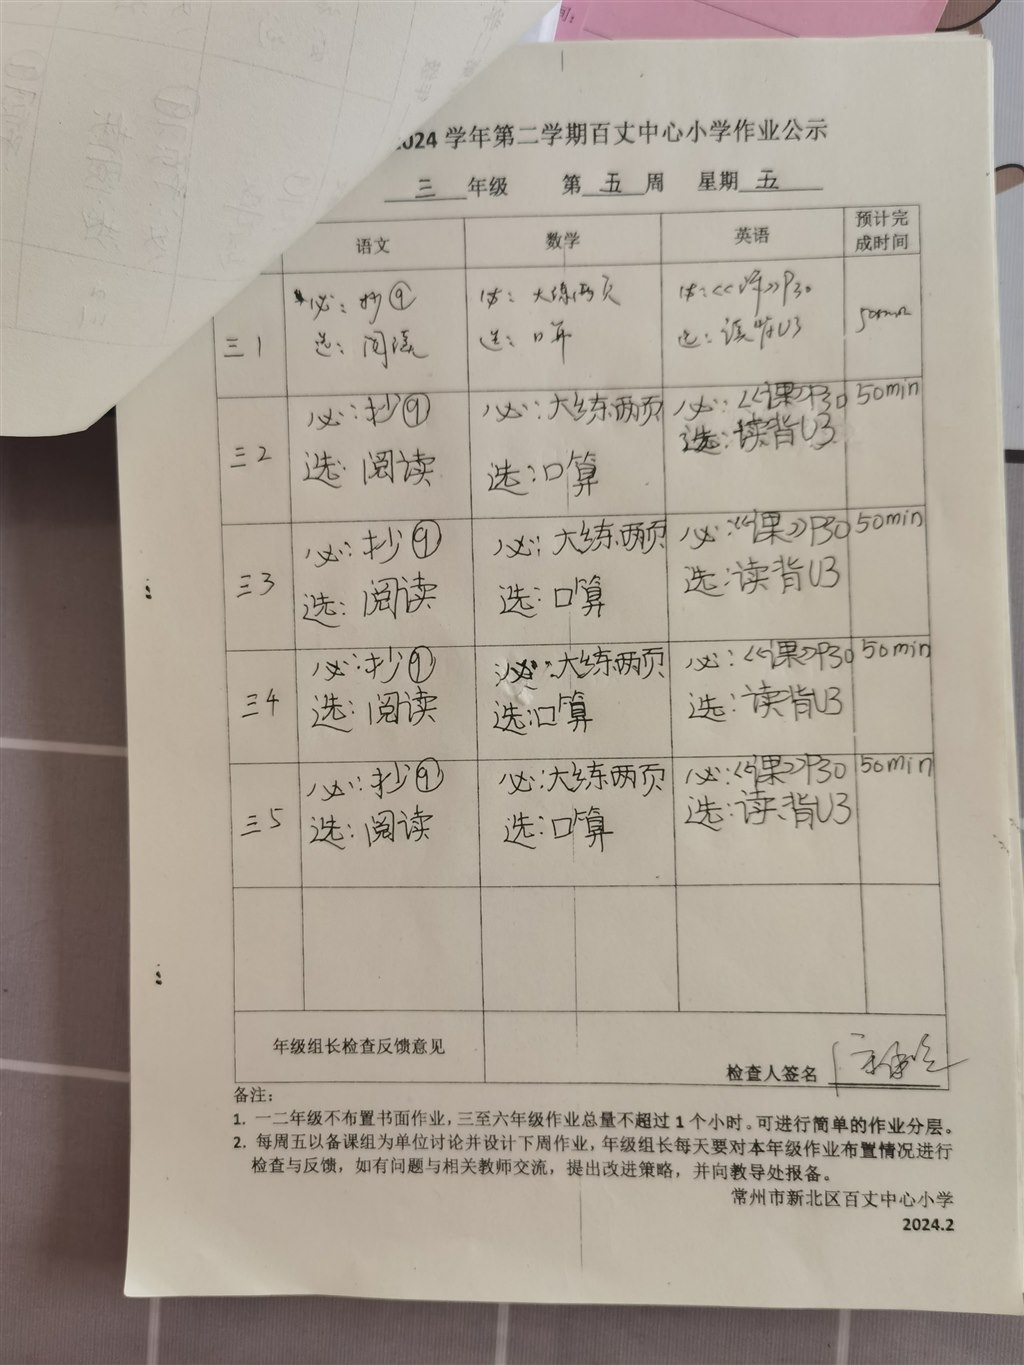 2024 学年第二学期百丈中心小学作业公示
三 年级 第 五 周 星期 五
语文 数学 英语 预计完成时间
三1
必：抄⑨
选：阅读
必：大练两页
选：口算
必：《课》P30
选：读背U3
50min
三2
必：抄⑨
选：阅读
必：大练两页
选：口算
必：《课》P30
选：读背U3
50min
三3
必：抄⑨
选：阅读
必：大练两页
选：口算
必：《课》P30
选：读背U3
50min
三4
必：抄⑨
选：阅读
必：大练两页
选：口算
必：《课》P30
选：读背U3
50min
三5
必：抄⑨
选：阅读
必：大练两页
选：口算
必：《课》P30
选：读背U3
50min
年级组长检查反馈意见
检查人签名
备注：
1. 一二年级不布置书面作业，三至六年级作业总量不超过 1 个小时。可进行简单的作业分层。
2. 每周五以备课组为单位讨论并设计下周作业，年级组长每天要对本年级作业布置情况进行
检查与反馈，如有问题与相关教师交流，提出改进策略，并向教导处报备。
常州市新北区百丈中心小学
2024.2